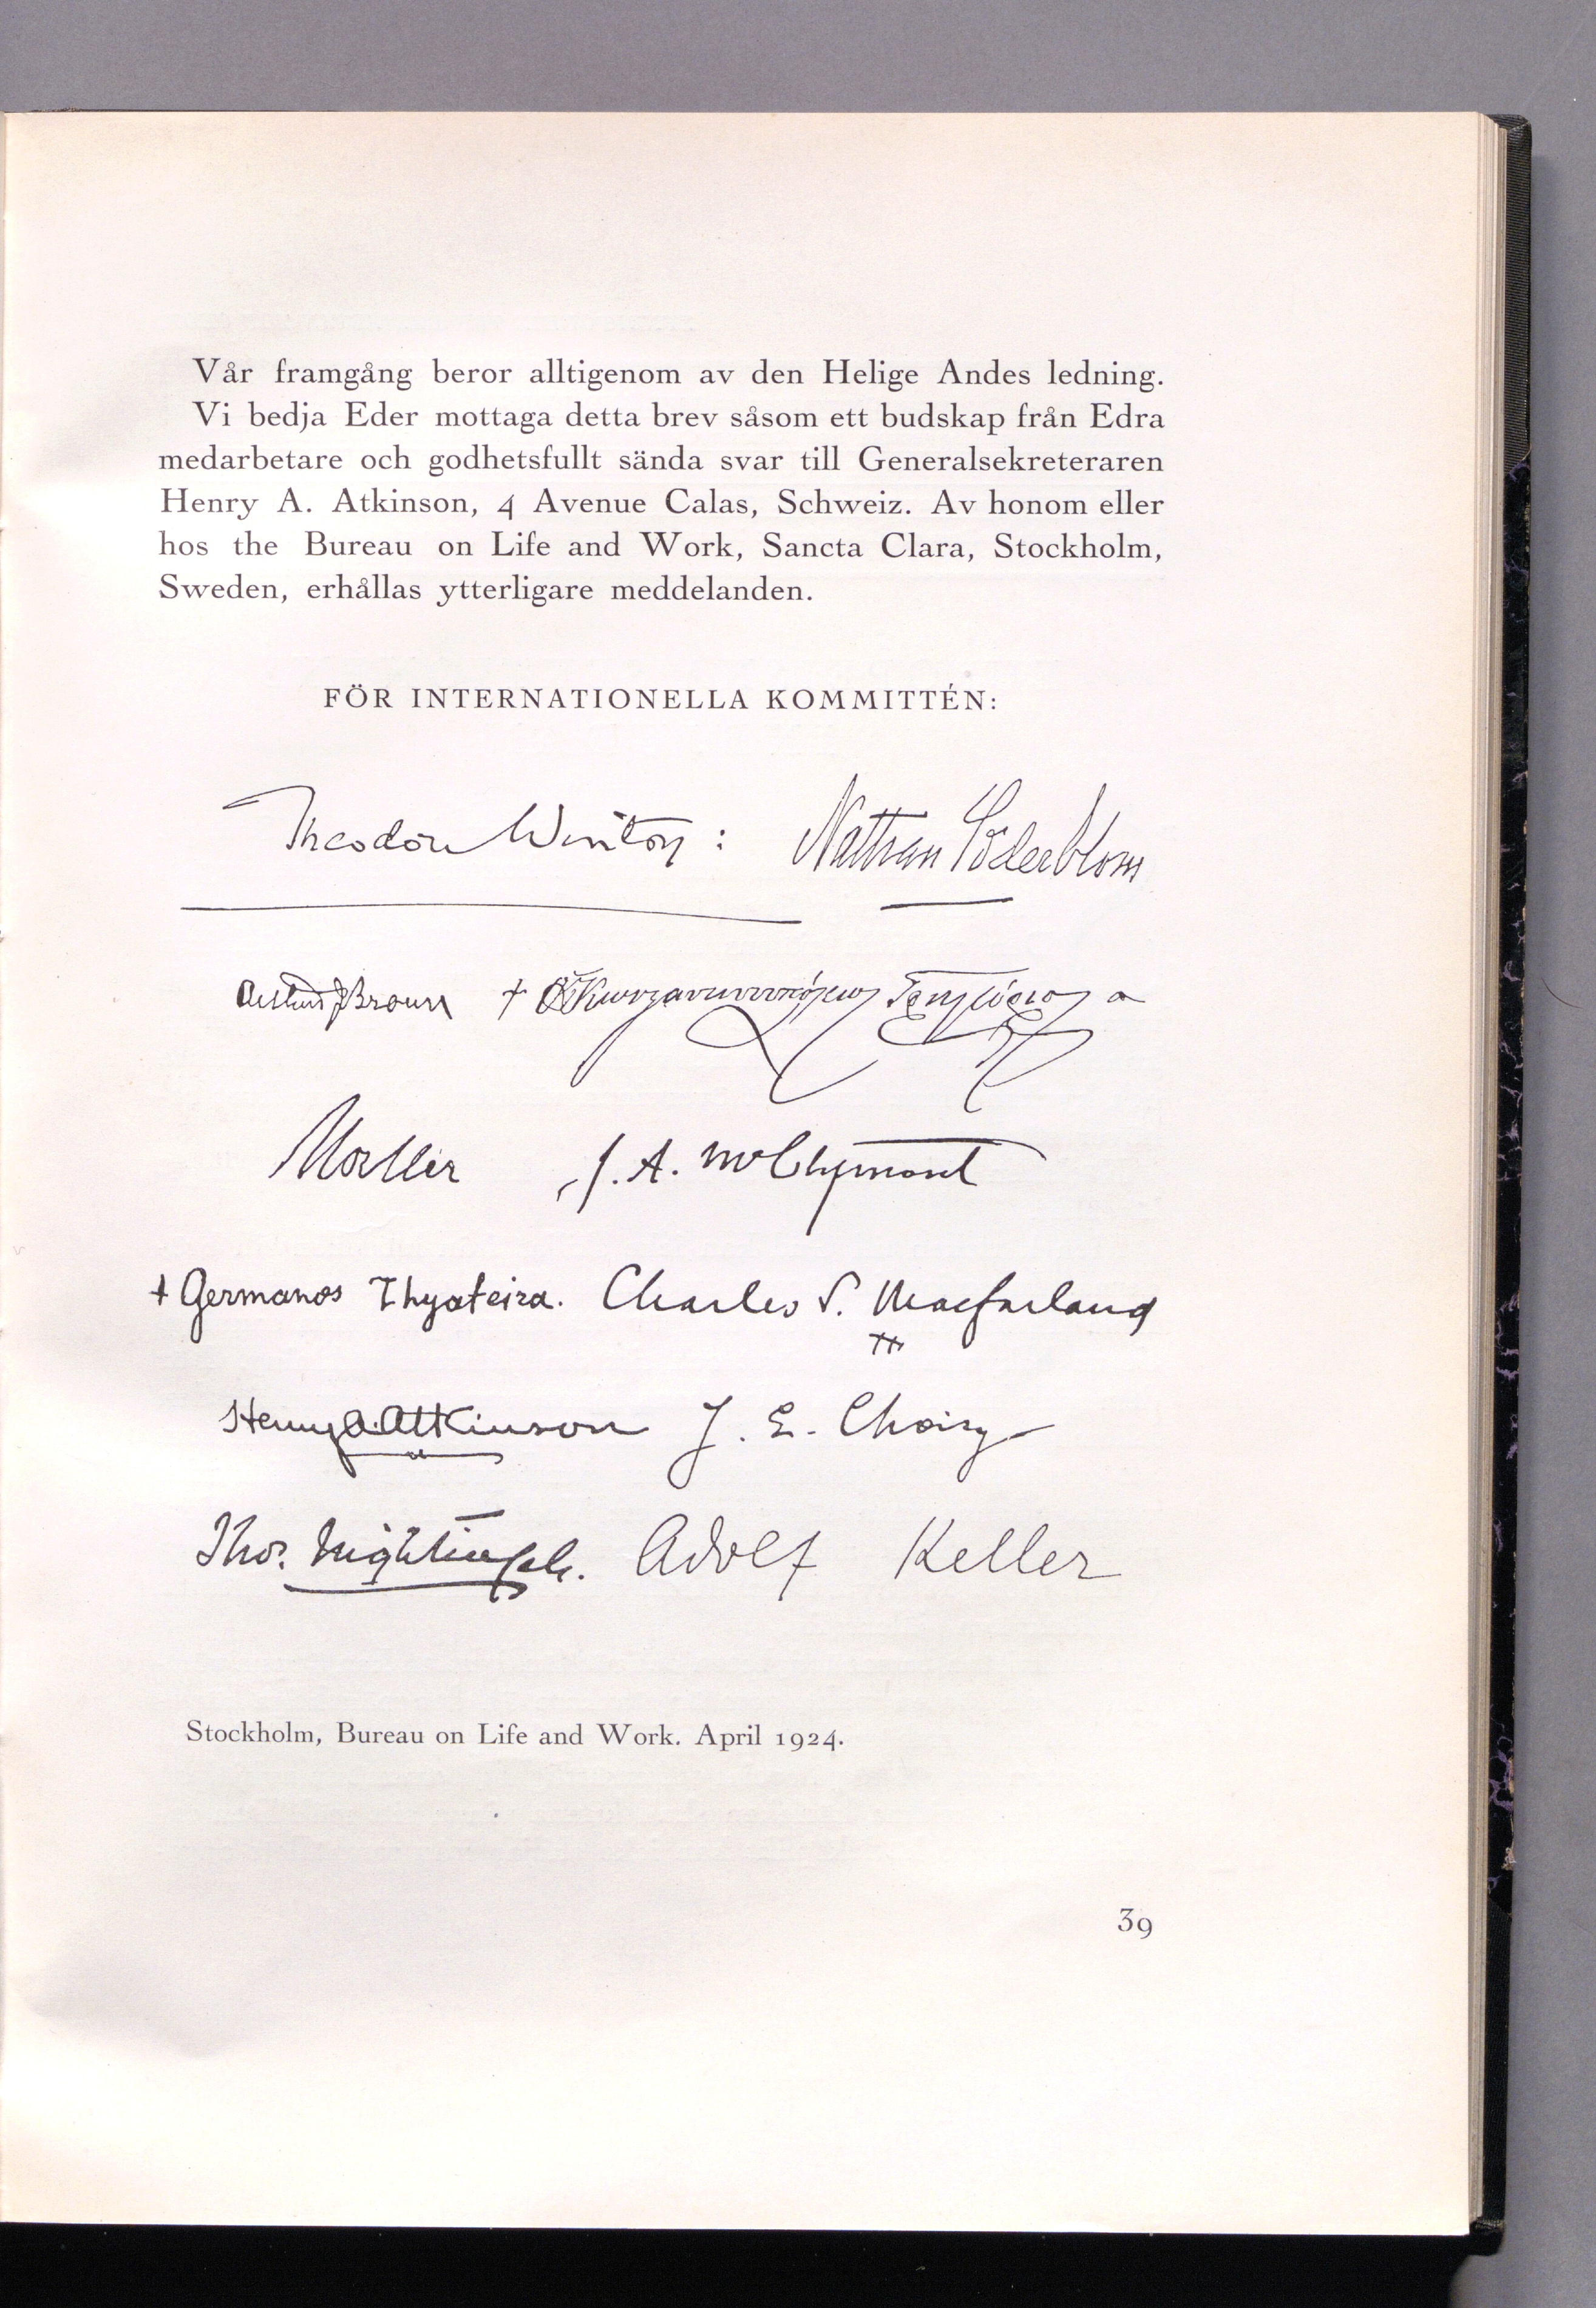 Vår framgång beror alltigenom av den Helige Andes ledning.
Vi bedja Eder mottaga detta brev såsom ett budskap från Edra
medarbetare och godhetsfullt sända svar till Generalsekreteraren
Henry A. Atkinson, 4 Avenue Calas, Schweiz. Av honom eller
hos the Bureau on Life and Work, Sancta Clara, Stockholm,
Sweden, erhållas ytterligare meddelanden.
FÖR INTERNATIONELLA KOMMITTÉN:
Theodore Winton: Nathan Söderblom
Arthur J Brown † Ὁ Κωνσταντινουπόλεως Γρηγόριος
Moeller J. A. McClymont
† Germanos Thyateira. Charles S. Macfarland
Henry A. Atkinson J. E. Choisy
Thos. Nightingale. Adolf Keller
Stockholm, Bureau on Life and Work. April 1924.
39